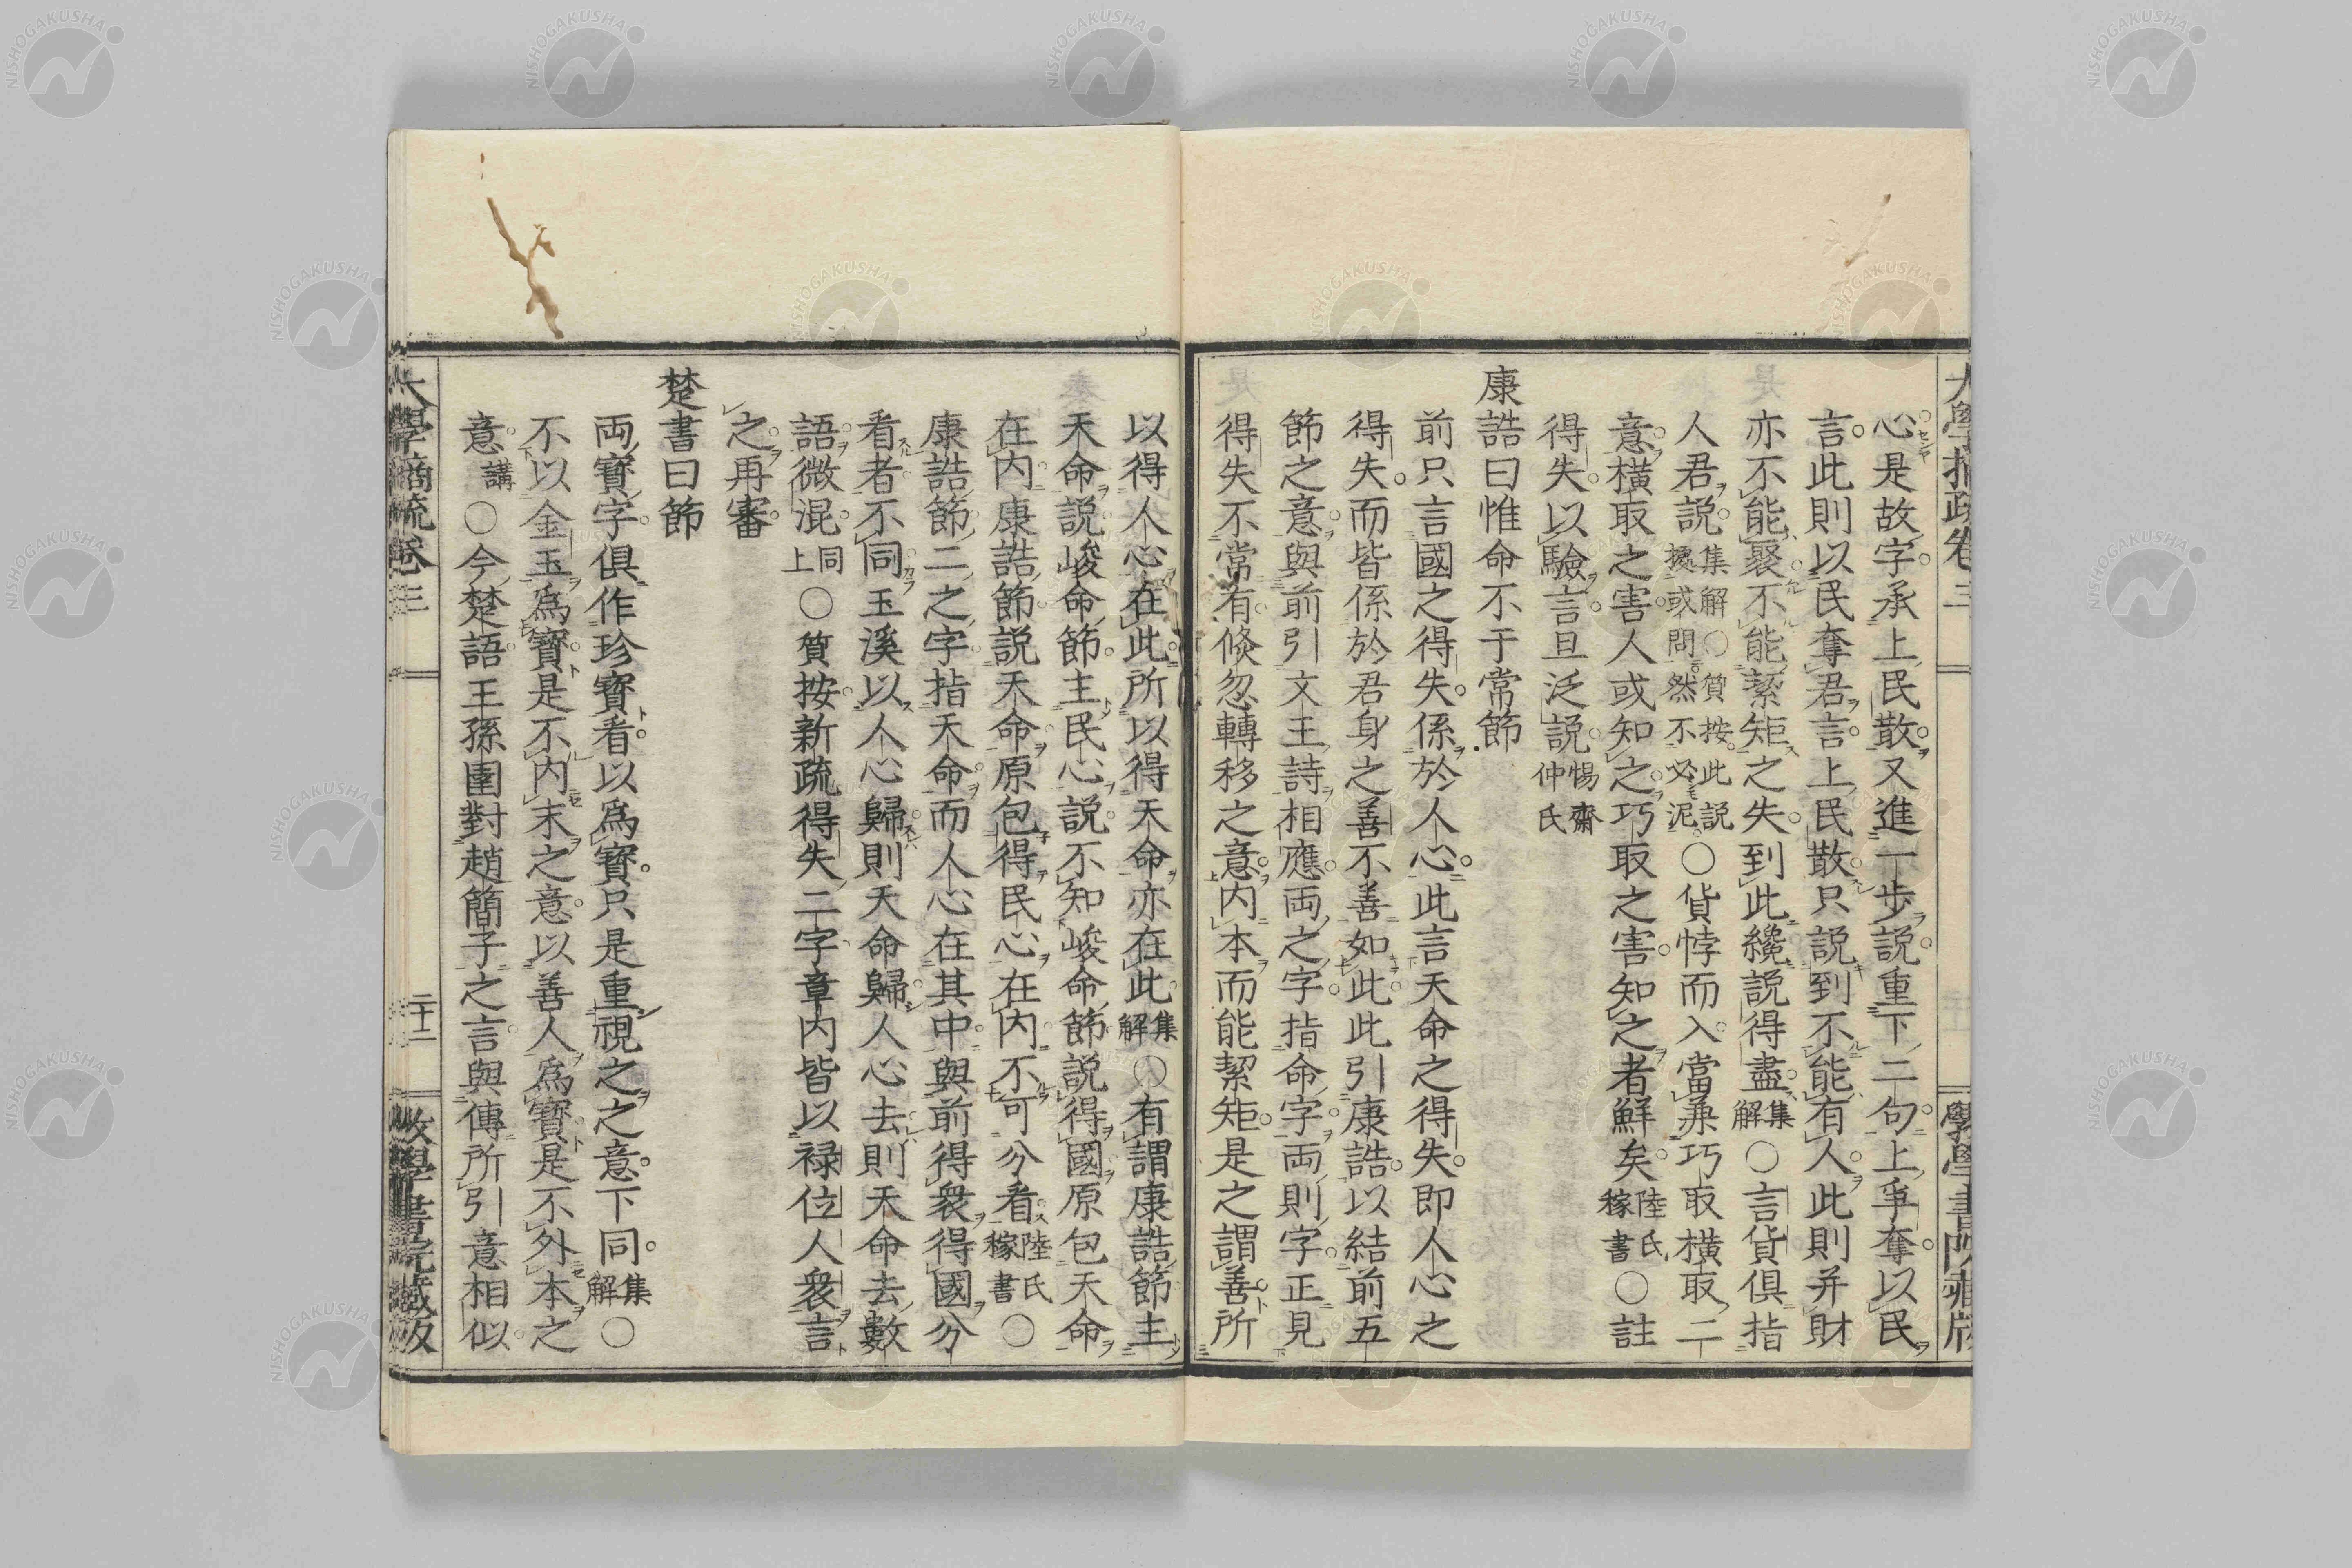 心是故字承上民散又進一歩説重下二句上爭奪以民
言此則以民奪君言上民散只説到不能有人此則并財
亦不能聚不能絜矩之失到此纔説得盡集解○言貨倶指
人君説集解○質按此説據或問然不必泥○貨悖而入當兼巧取横取二
意横取之害人或知之巧取之害知之者鮮矣陸氏稼書○註
得失以驗言且泛説惕齋仲氏
康誥曰惟命不于常節
前只言國之得失係於人心此言天命之得失即人心之
得失而皆係於君身之善不善如此此引康誥以結前五
節之意與前引文王詩相應両之字指命字両則字正見
得失不常有倏忽轉移之意内本而能絜矩是之謂善所
以得人心在此所以得天命亦在此集解○有謂康誥節主
天命説峻命節主民心説不知峻命節説得國原包天命
在内康誥節説天命原包得民心在内不可分看陸氏稼書○
康誥節二之字指天命而人心在其中與前得衆得國分
看者不同玉溪以人心歸則天命歸人心去則天命去數
語微混同上○質按新疏得失二字章内皆以禄位人衆言
之再審
楚書曰節
両寶字倶作珍寶看以為寶只是重視之之意下同集解○
不以金玉為寶是不内末之意以善人為寶是不外本之
意講○今楚語王孫圉對趙簡子之言與傳所引意相似
大學摘疏卷三
二十二
敩學書院藏版